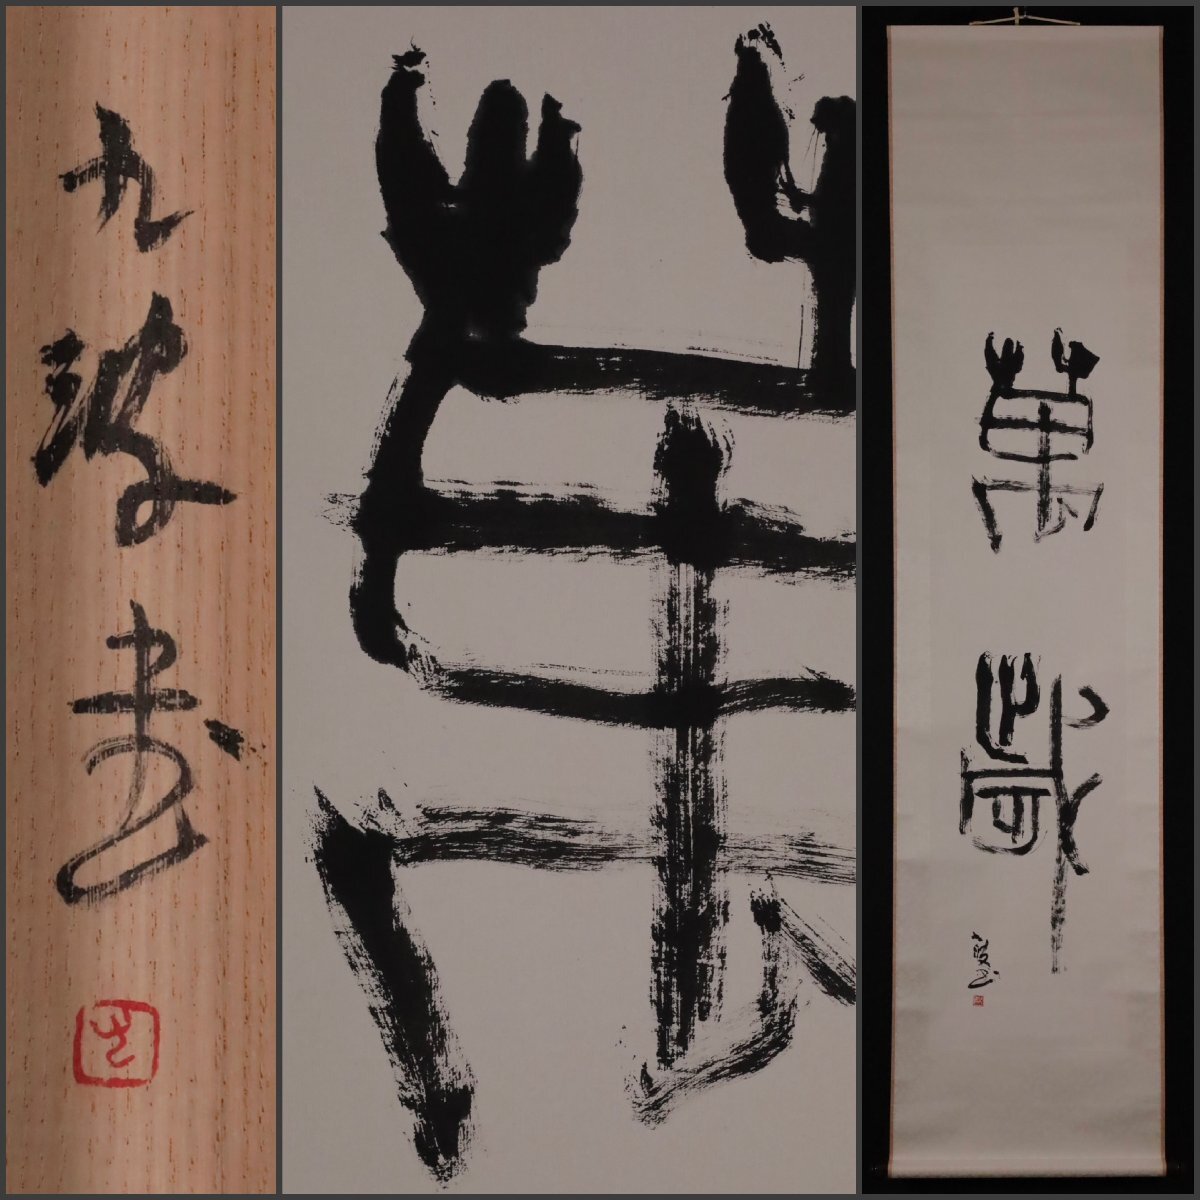 九波書
萬歳